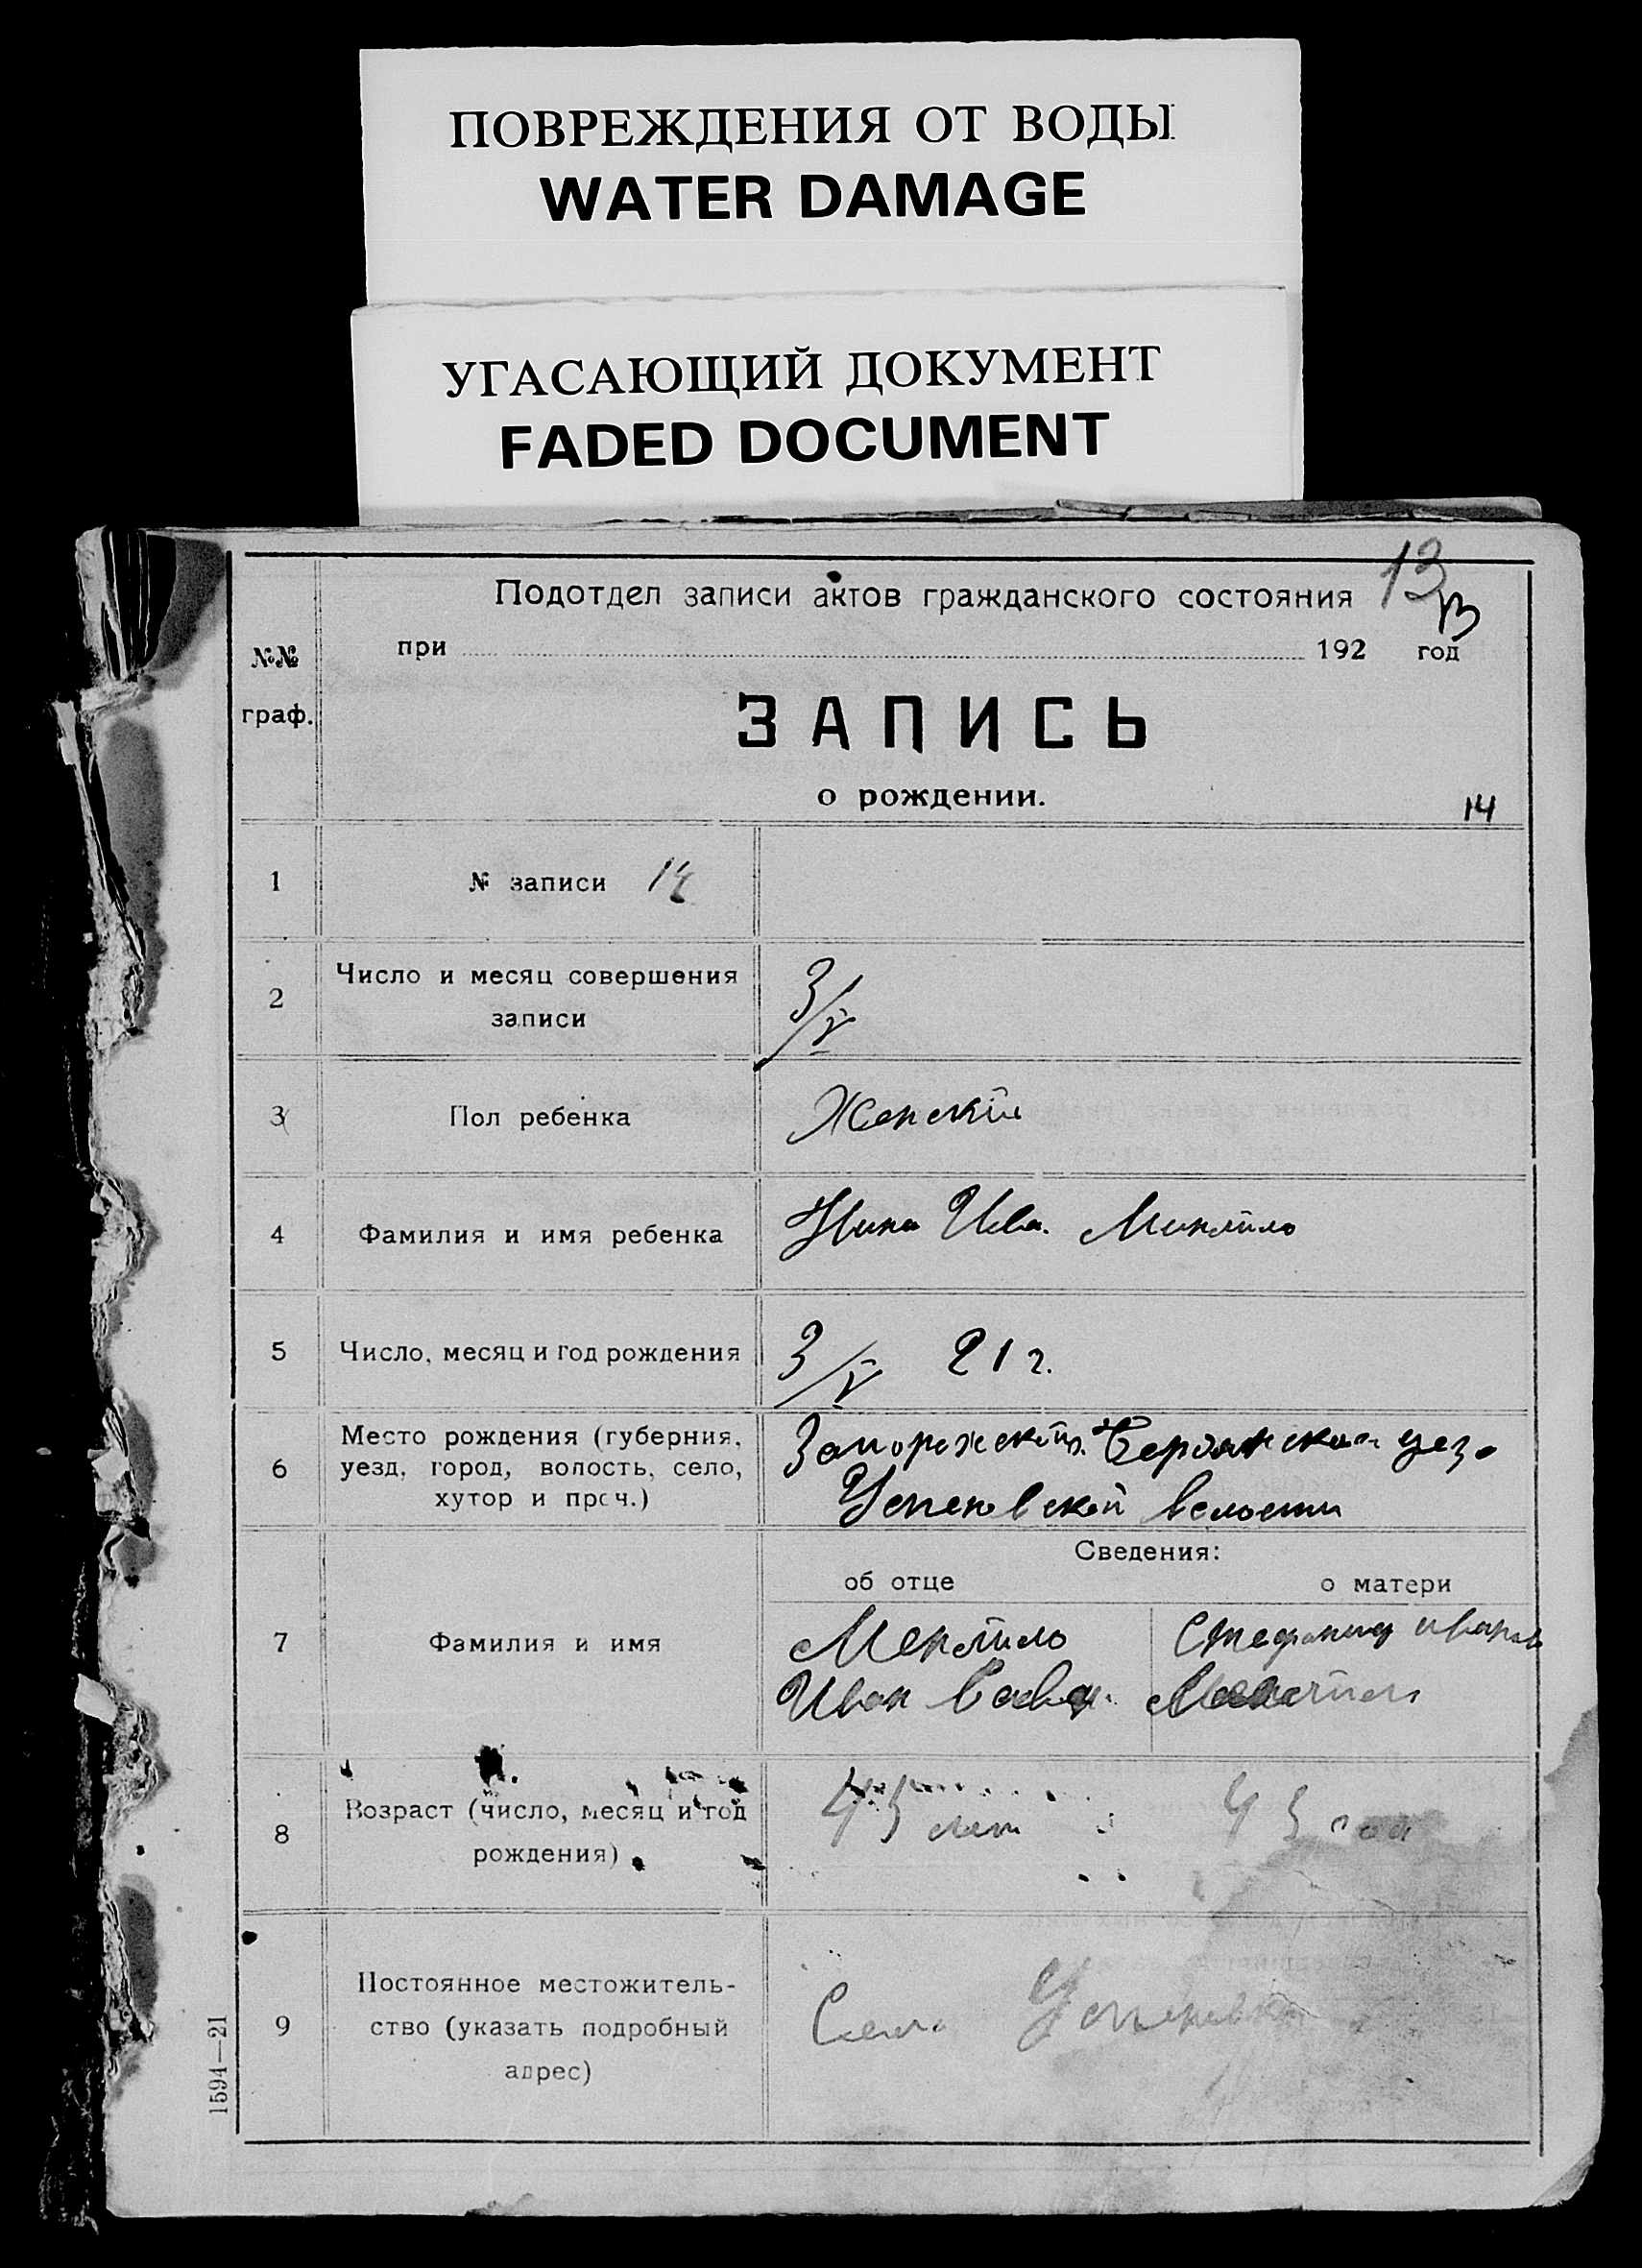 ПОВРЕЖДЕНИЯ ОТ ВОДЫ
WATER DAMAGE
УГАСАЮЩИЙ ДОКУМЕНТ
FADED DOCUMENT
13
Подотдел записи актов гражданского состояния
13
при 192 год
№№
граф.
ЗАПИСЬ
о рождении.
14
1 № записи
2 Число и месяц совершения
записи
3/V
3 Пол ребенка Женскій
4 Фамилия и имя ребенка Нина Ива.
5 Число, месяц и год рождения 3/V 21 г.
6 Место рождения (губерния,
уезд, город, волость, село,
хутор и проч.)
Запорожской Бердянскаго уез.
Успеновской волости
Сведения:
об отце о матери
7 Фамилия и имя
Иван Савв.
8 Возраст (число, месяц и год
рождения)
45 лет 43 года
9 Постоянное местожитель-
ство (указать подробный
адрес)
Село Успеновка
1594—21